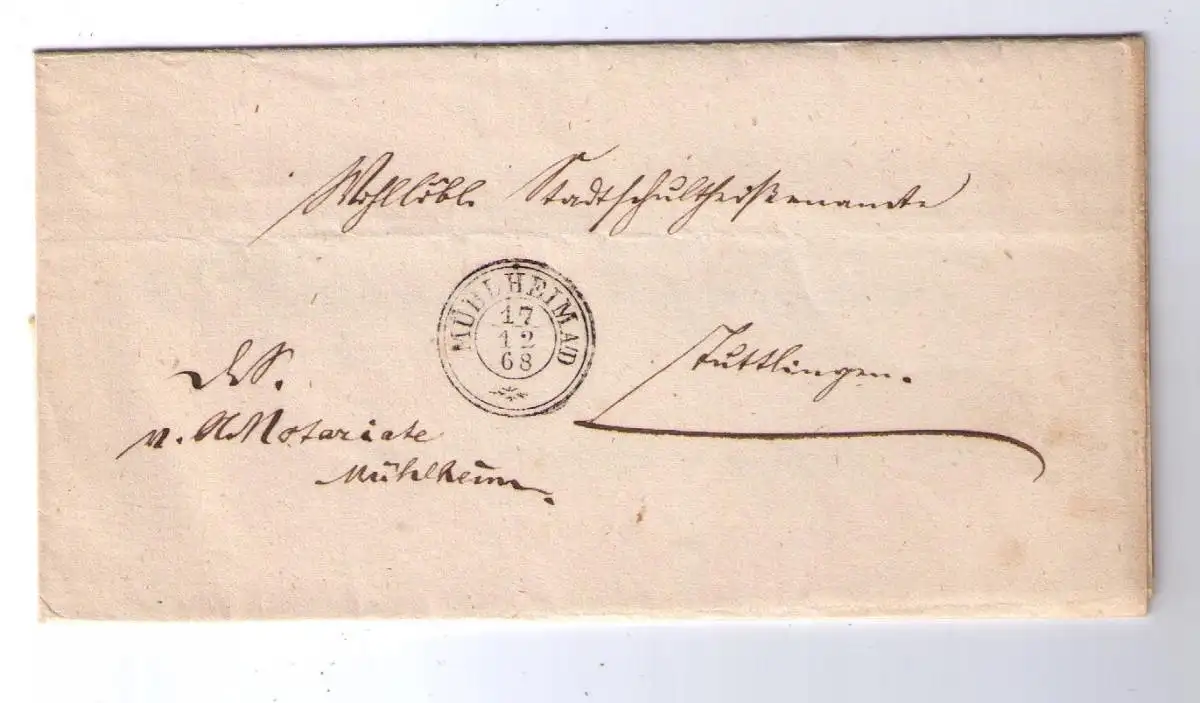 Wohllöbl. Stadtschultheißenamte
MÜHLHEIM A/D
17
12
68
Tuttlingen.
D.S.
v. A.Notariate
Mühlheim.